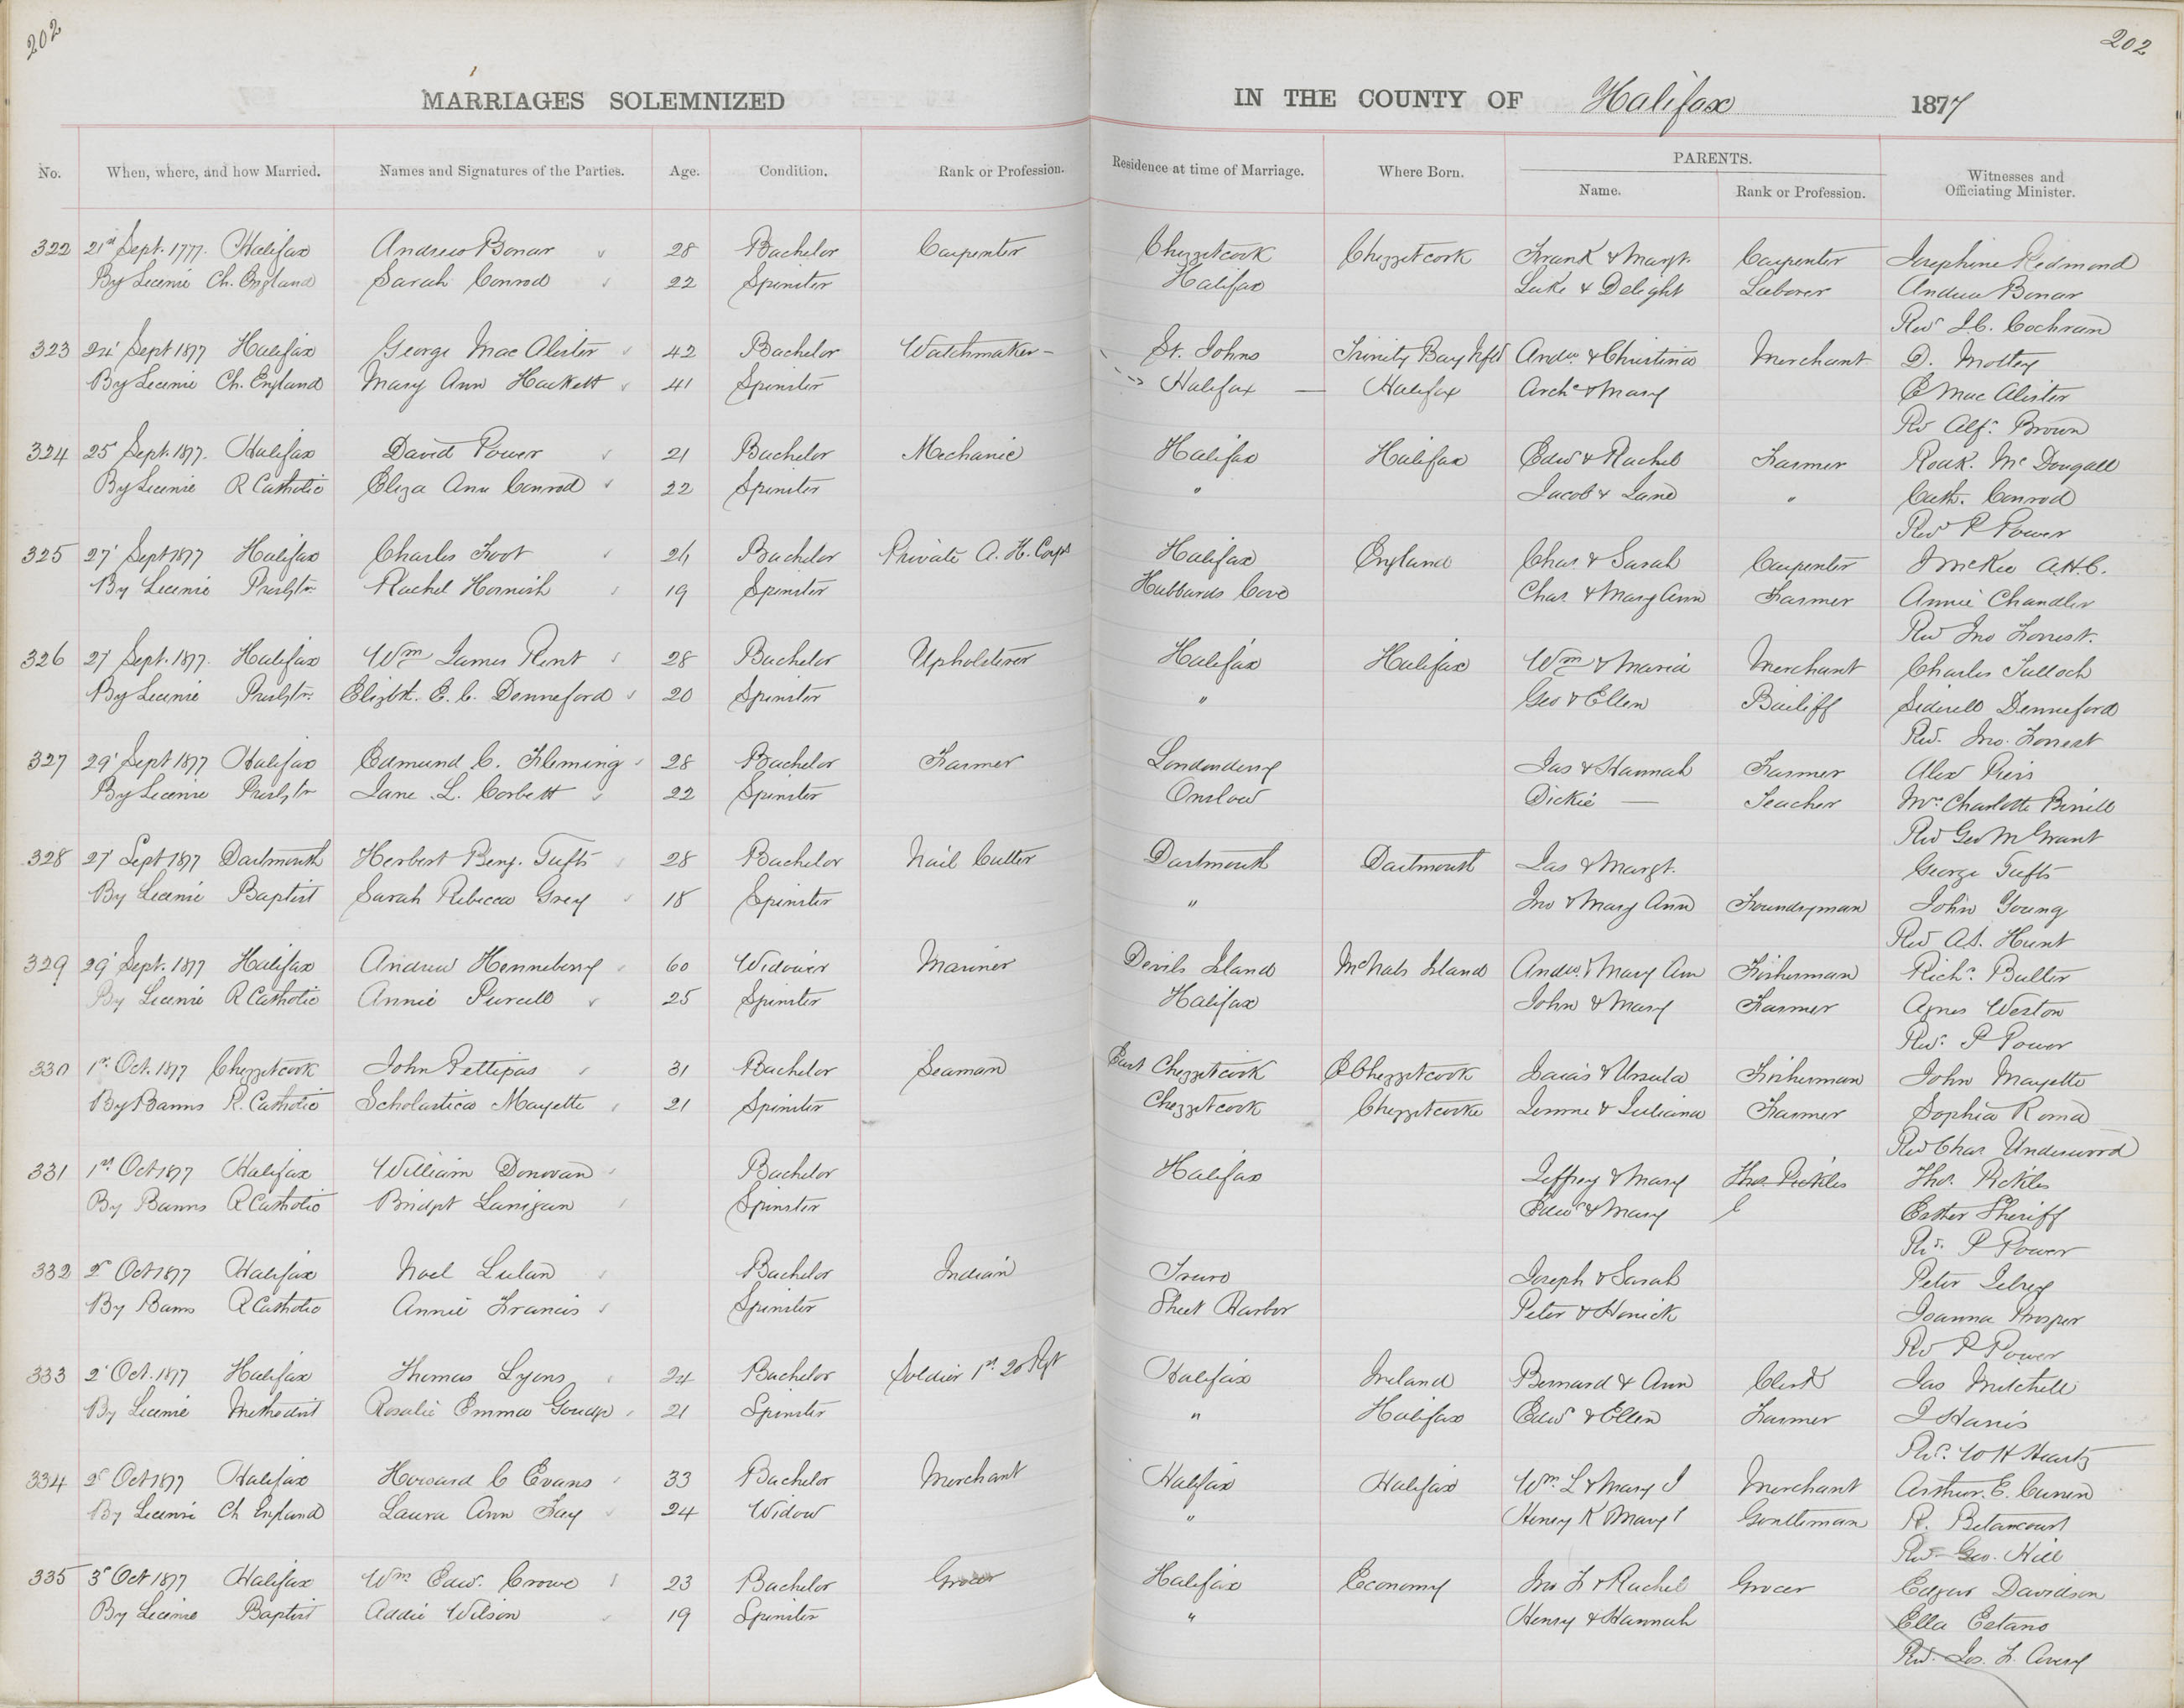 202
202
MARRIAGES SOLEMNIZED IN THE COUNTY OF Halifax 1877
No. When, where, and how Married. Names and Signatures of the Parties. Age. Condition. Rank or Profession. Residence at time of Marriage. Where Born. PARENTS. Name. Rank or Profession. Witnesses and Officiating Minister.
322 21st Sept. 1777. Halifax Andrew Bonar 28 Bachelor Carpenter Chezzetcook Chezzetcook Frank & Margt. Carpenter Josephine Redmond
By License Ch. England Sarah Conrod 22 Spinster Halifax Luke & Delight Laborer Andrew Bonar
Revd J.C. Cochran
323 24' Sept 1877 Halifax George Mac Alister 42 Bachelor Watchmaker - St. Johns Trinity Bay Nfld Andw & Christina Merchant D. Motley
By License Ch. England Mary Ann Hackett 41 Spinster Halifax — Halifax Archd & Mary C Mac Alister
Rev Alfd Brown
324 25 Sept. 1877. Halifax David Power 21 Bachelor Mechanic Halifax Halifax Edw & Rachel Farmer Roak. Mc Dougall
By License R Catholic Eliza Ann Conrod 22 Spinster " Jacob & Jane " Cath. Conrod
Revd P Power
325 27' Sept 1877 Halifax Charles Foot 24 Bachelor Private A. H. Corps Halifax England Chas & Sarah Carpenter J McKee A.H.C.
By License Presbtn Rachel Hornish 19 Spinster Hubbards Cove Chas. & Mary Ann Farmer Annie Chandler
Rev Jno Forrest.
326 27' Sept. 1877. Halifax Wm James Rent 28 Bachelor Upholsterer Halifax Halifax Wm & Maria Merchant Charles Tulloch
By License Presbtn. Elizbt. E. C. Denneford 20 Spinster " Geo & Ellen Bailiff Denneford
Rev. Jno. Forrest
327 29' Sept 1877 Halifax Edmund C. Fleming 28 Bachelor Farmer Londonderry Jas & Hannah Farmer Alex Piers
By License Presbtn Jane L. Corbett 22 Spinster Onslow Dickie — Teacher Mrs Charlotte
Rev Geo M Grant
328 27' Sept 1877 Dartmouth Herbert Benj. Tufts 28 Bachelor Nail Cutter Dartmouth Dartmouth Jas & Margt. George Tufts
By License Baptist Sarah Rebecca Grey 18 Spinster " Jno & Mary Ann Foundryman John Young
Rev A.S. Hunt
329 29' Sept. 1877 Halifax Andrew Henneberry 60 Widower Mariner Devils Island McNabs Island Andw. & Mary Ann Fisherman Richd. Butler
By License R Catholic Annie Purcell 25 Spinster Halifax John & Mary Farmer Agnes Weston
Revd P Power
330 1st Oct. 1877 Chezzetcook John Pettipas 31 Bachelor Seaman East Chezzetcook E Chezzetcook Isaias & Ursula Fisherman John Mayette
By Banns R. Catholic Scholastica Mayette 21 Spinster Chezzetcook Chezzetcooke & Juliana Farmer Sophia Roma
Rev Chas Underwood
331 1st Oct 1877 Halifax William Donovan Bachelor Halifax Jeffrey & Mary Thos. Pickles Thos. Pickles
By Banns R Catholic Bridget Lanigan Spinster Edwd & Mary Esther Sheriff
Rev. P Power
332 2d Oct 1877 Halifax Noel Lulan Bachelor Indian Truro Joseph & Sarah Peter
By Banns R Catholic Annie Francis Spinster Sheet Harbor Peter & Joanna Prosper
Rev P Power
333 2' Oct. 1877 Halifax Thomas Lyons 24 Bachelor Soldier 1st 20 Rgt Halifax Ireland Bernard & Ann Clerk Jas Mitchell
By License Methodist Rosalie Emma Goudge 21 Spinster " Halifax Edwd & Ellen Farmer J Harris
Revd. W H Heartz
334 2d Oct 1877 Halifax Howard C Evans 33 Bachelor Merchant Halifax Halifax Wm L & Mary J Merchant Arthur. E. Curren
By License Ch England Laura Ann Fay 24 Widow " Henry K Mary Gentleman R. Betancourt
Revd Geo. Hill
335 3d Oct 1877 Halifax Wm Edw. Crowe 23 Bachelor Grocer Halifax Economy Jno F & Rachel Grocer Edgar Davidson
By License Baptist Addie Wilson 19 Spinster " Henry & Hannah Ella Estano
Revd. Jos. F. Avery